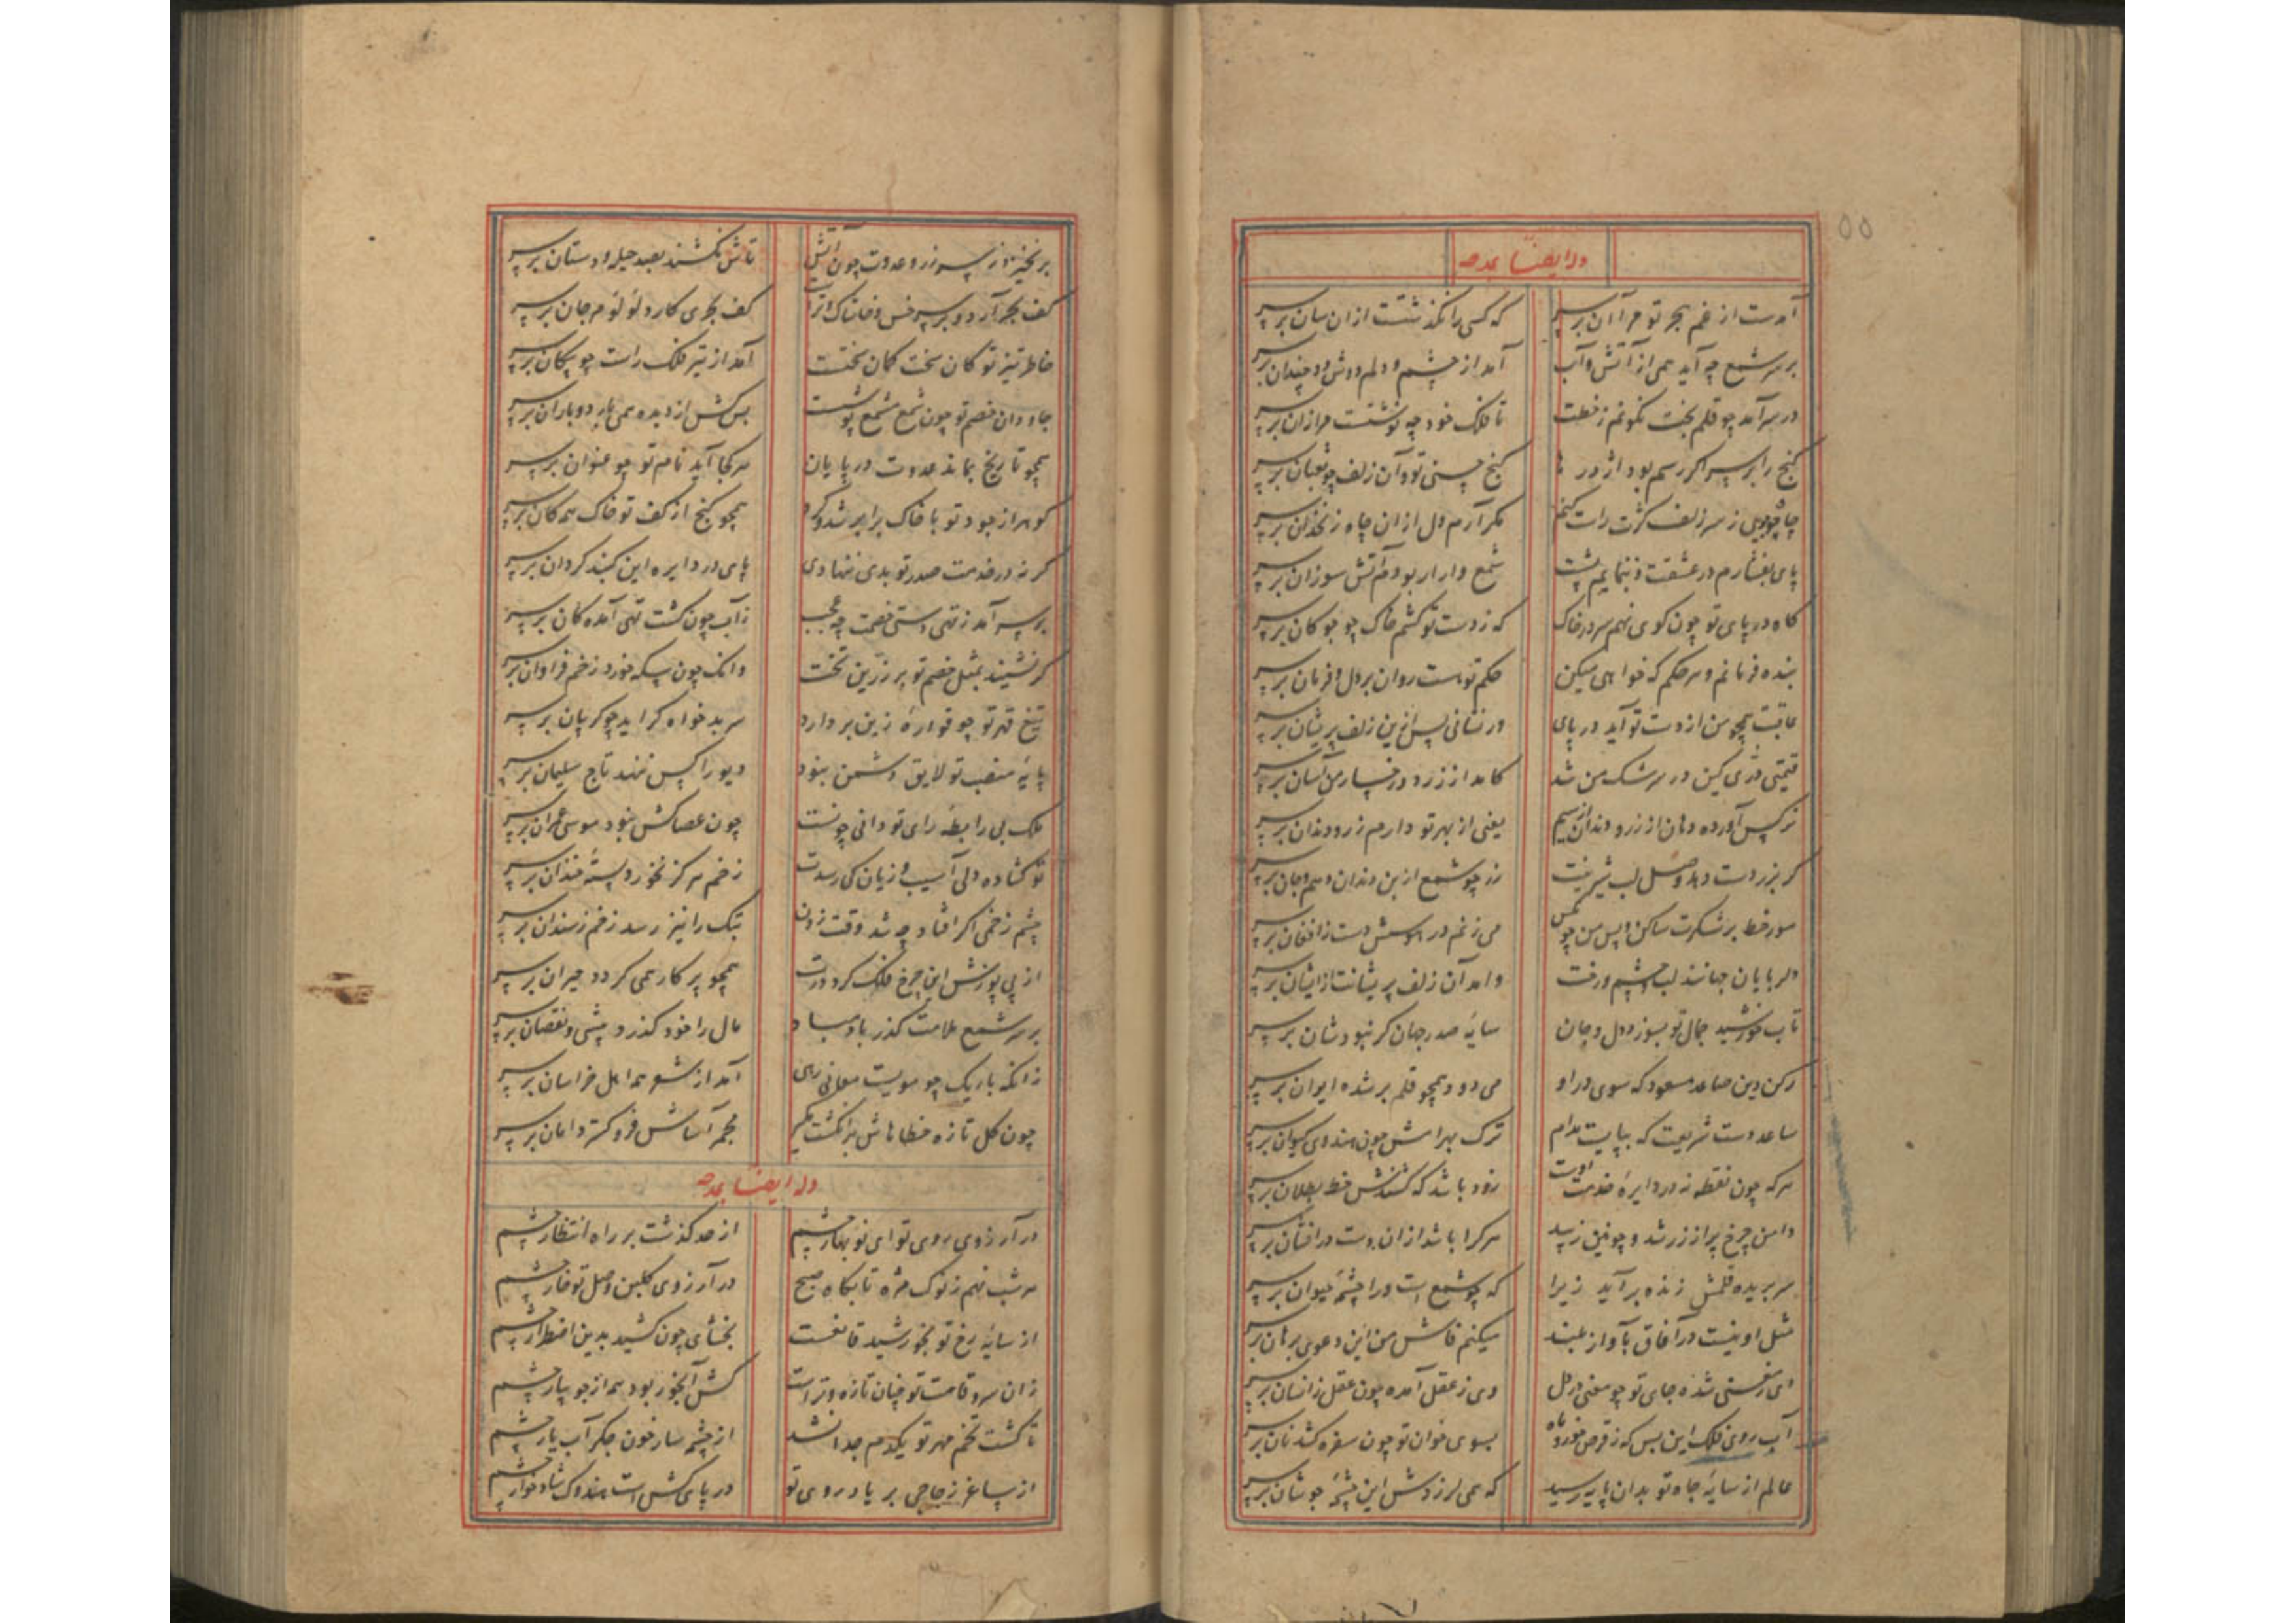 وله ایضا یمدحه
آمدست از غم هجر تو مرا آن بر سر
که کسی را نگذشتست ازان سان بر سر
بر سر شمع چه آید همی از آتش و آب
آمد از چشم و دلم دوش دو چندان بر سر
در سر آمد چو قلم بخت نگونم ز خطت
تا فلک خود چه نوشتست مرا زان بر سر
گنج را بر سر اگر رسم بود اژدرها
گنج حسنی تو و آن زلف چو ثعبان بر سر
چاه جویی ز سر زلف کژت راست کنم
مگر آرم دل ازان چاه زنخدان بر سر
پای بفشارم در عشقت و ننمایم پشت
شمع وار ار بودم آتش سوزان بر سر
گاه در پای تو چون گوی نهم سر در خاک
که ز دست تو کشم خاک چو چوگان بر سر
بنده فرمانم و هر حکم که خواهی میکن
حکم تو هست روان بر دل و فرمان بر سر
عاقبت همچو من از دست تو آید در پای
ور نشانی پس ازین زلف پریشان بر سر
قیمتی دری کین در سرشک من شد
کامد از زر و رخسار من آسان بر سر
نرگس آورده دهان از زر و دندان از سیم
یعنی از بهر تو دارم زر و دندان بر سر
گر بزر دست دهد وصل لب شیرینت
زر چو شمع از بن دندان دهم و جان بر سر
مور خط بر شکرت ساکن و پس من چو مگس
می زنم در هوسش دست ز افغان بر سر
دلربایان جهانند لب و چشم و رخت
وامد آن زلف پریشانت ازایشان بر سر
تاب خورشید جمال تو بسوزد دل و جان
سایهٔ صدر جهان گر نبودشان بر سر
رکن دین صاعد مسعود که سوی در او
می دود همچو قلم بر شده ایوان بر سر
ساعد دست شریعت که بپایست مدام
ترک بهرامش چون هندوی کیوان بر سر
هرکه چون نقطه نه در دایرهٔ خدمت اوست
زود باشد که کشندش خط بطلان بر سر
دامن چرخ پر از زر شد و چونین زیبد
هرکرا باشد ازان دست درافشان بر سر
سر بریده قلمش زنده برآید زیرا
که چو شمع است ورا چشمهٔ حیوان بر سر
مثل او نیست در آفاق بآواز بلند
میکنم فاش من این دعوی برهان بر سر
ای ز هستی شده جای تو چو معنی در دل
وی ز عقل آمده چون عقل ز انسان بر سر
آب روی فلک این بس که ز قرص خور و ماه
بسوی خوان تو چون سفره کشد نان بر سر
عالم از سایهٔ جاه تو بدان پایه رسید
که همی لرزدش این چشمهٔ جوشان بر سر
برنخیزد ز سر زر و عدوت چون آتش
تاش نکشند بصد حیله و دستان بر سر
کف بحر آرد بر سر خس و خاشاک اتراب
کف بحری کارد لؤلؤ مرجان بر سر
خاطر تیز تو کان سخت کمان سختست
آمد از تیر فلک راست چو پیکان بر سر
جاودان خصم تو چون شمع مشمع پوشست
بس کش از دیده همی بارد باران بر سر
همچو تاریخ بماند عدوت در پایان
هرکجا آید نام تو چو عنوان بر سر
گوهر از جود تو با خاک برابر شد و کرد
همچو گنج از کف تو خاک همه کان بر سر
گر نه در خدمت صدر تو بدی ننهادی
پای در دایره این گنبد گردان بر سر
بر سر آمد ز تهی دستی خصمت چه عجب
ز آب چون گشت تهی آمده کان بر سر
گر نشیند بمثل خصم تو بر زرین تخت
دانک چون سکه خورد زخم فراوان بر سر
تیغ قهر تو چو قوارهٔ زین بر دارد
سر بدخواه گر آید چو گریبان بر سر
پایهٔ منصب تو لایق دشمن نبود
دیو را کس ننهد تاج سلیمان بر سر
ملک بی رابطهٔ رای تو دانی چونست
چون عصا کش نبود موسی عمران بر سر
تو گشاده دلی آسیب و زیان کی رسدت
زخم هرگز نخورد پستهٔ خندان بر سر
چشم زخمی اگر افتاد چه شد وقت زدن
پتک را نیز رسد زخم ز سندان بر سر
از پی پوزش این چرخ فلک گرد درت
همچو پرگار همی گردد حیران بر سر
بر سر شمع ملامت گذرد باد صبا
مال را خود گذرد بیشی و نقصان بر سر
زانکه باریک چو مویست معانی رهی
آمد از شعر همه اهل خراسان بر سر
چون گل تازه خطاهاش بر انگشت مگیر
مجمر آساش فرو گستر دامان بر سر
وله ایضا یمدحه
در آرزوی روی تو ای نوبهار چشم
از حد گذشت بر راه انتظار چشم
هر شب نهم ز نوک مژه تا بگاه صبح
در آرزوی گلبن وصل تو خار چشم
از سایهٔ رخ تو بخورشید قانعست
بخشای چون کشید بدین اضطرار چشم
زان سرو قامت تو چنان تازه و ترست
کش آبخور بود همه از جویبار چشم
تا کشت تخم مهر تو یکدم جدا نشد
از چشمه سار خون جگر آب یار چشم
از ساغر زجاجی بر یاد روی تو
در پای کش است هندوک شادخوار چشم